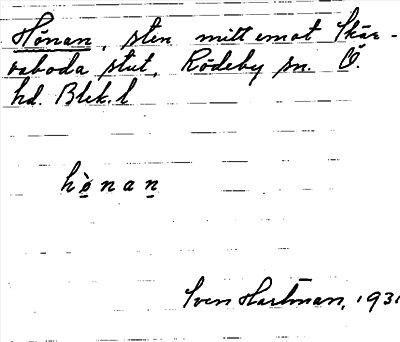 Hönan, sten mitt emot Skär-
vaboda slut, Rödeby sn. Ö.
hd. Blek. l
hø̀nan̲
Sven Hartman, 1931